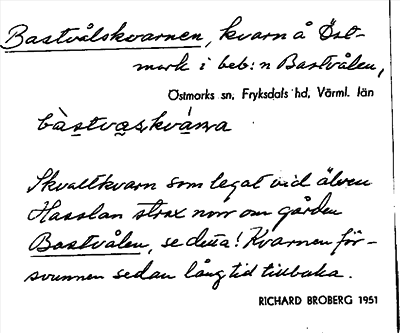 Bastvålskvarnen, kvarn å Öst-
mark i beb:n Bastvålen,
Östmarks sn, Fryksdals hd, Värml. län
Skvaltkvarn som legat vid älven
Hasslan strax norr om gården
Bastvålen, se detta! Kvarnen för-
svunnen sedan lång tid tillbaka.
RICHARD BROBERG 1951